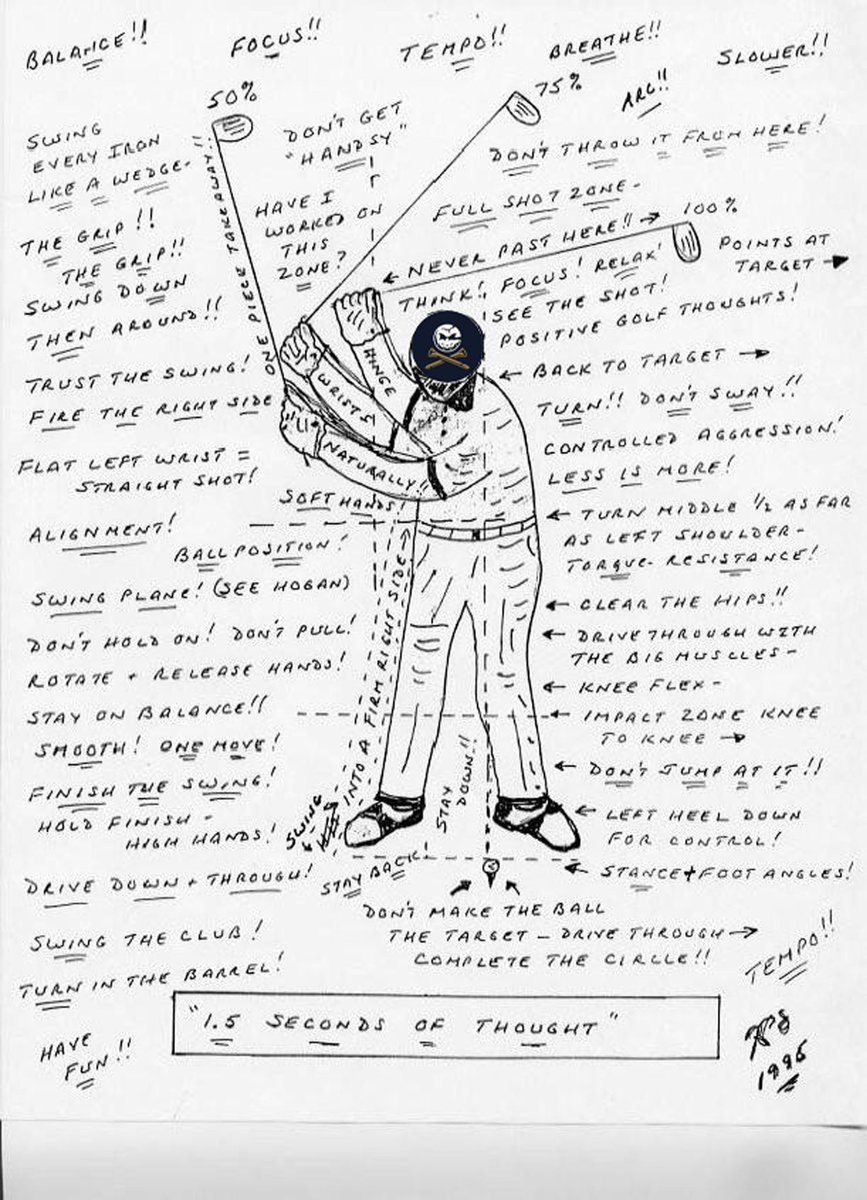 BALANCE!!
FOCUS!!
TEMPO!!
BREATHE!!
SLOWER!!
50%
75%
ARC!!
SWING
EVERY IRON
LIKE A WEDGE-
DON'T GET
"HANDSY"
DON'T THROW IT FROM HERE!
FULL SHOT ZONE-
HAVE I
WORKED ON
THIS
ZONE?
100%
THE GRIP!!
THE GRIP!!
ONE PIECE TAKEAWAY!!
← NEVER PAST HERE!! →
POINTS AT
TARGET →
SWING DOWN
THEN AROUND!!
THINK! FOCUS! RELAX!
SEE THE SHOT!
POSITIVE GOLF THOUGHTS!
HINGE
WRISTS
NATURALLY!!
TRUST THE SWING!
FIRE THE RIGHT SIDE
← BACK TO TARGET →
TURN!! DON'T SWAY!!
CONTROLLED AGGRESSION!
LESS IS MORE!
FLAT LEFT WRIST =
STRAIGHT SHOT!
SOFT HANDS!
ALIGNMENT!
BALL POSITION!
← TURN MIDDLE 1/2 AS FAR
AS LEFT SHOULDER-
TORQUE- RESISTANCE!
SWING PLANE! (SEE HOGAN)
← CLEAR THE HIPS!!
DON'T HOLD ON! DON'T PULL!
← DRIVE THROUGH WITH
THE BIG MUSCLES-
ROTATE + RELEASE HANDS!
← KNEE FLEX-
STAY ON BALANCE!!
← IMPACT ZONE KNEE
TO KNEE →
SMOOTH! ONE MOVE!
FINISH THE SWING!
← DON'T JUMP AT IT!!
HOLD FINISH-
HIGH HANDS!
SWING
INTO A FIRM RIGHT SIDE →
STAY
DOWN!!
← LEFT HEEL DOWN
FOR CONTROL!
DRIVE DOWN + THROUGH!
STAY BACK
← STANCE + FOOT ANGLES!
DON'T MAKE THE BALL
THE TARGET - DRIVE THROUGH →
COMPLETE THE CIRCLE!!
SWING THE CLUB!
TURN IN THE BARREL!
TEMPO!!
"1.5 SECONDS OF THOUGHT"
HAVE
FUN!!